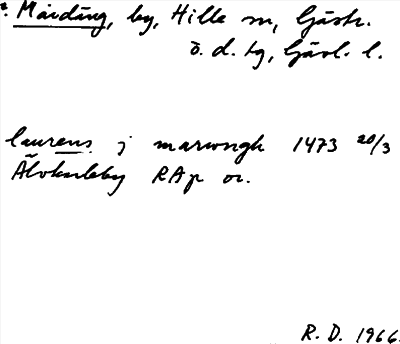 Mårding, by, Hille sn, Gästr.
ö. d. tg, Gävl. l.
laurens j marwngh 1473 20/3
Älvkarleby RAp or.
R. D. 1966.